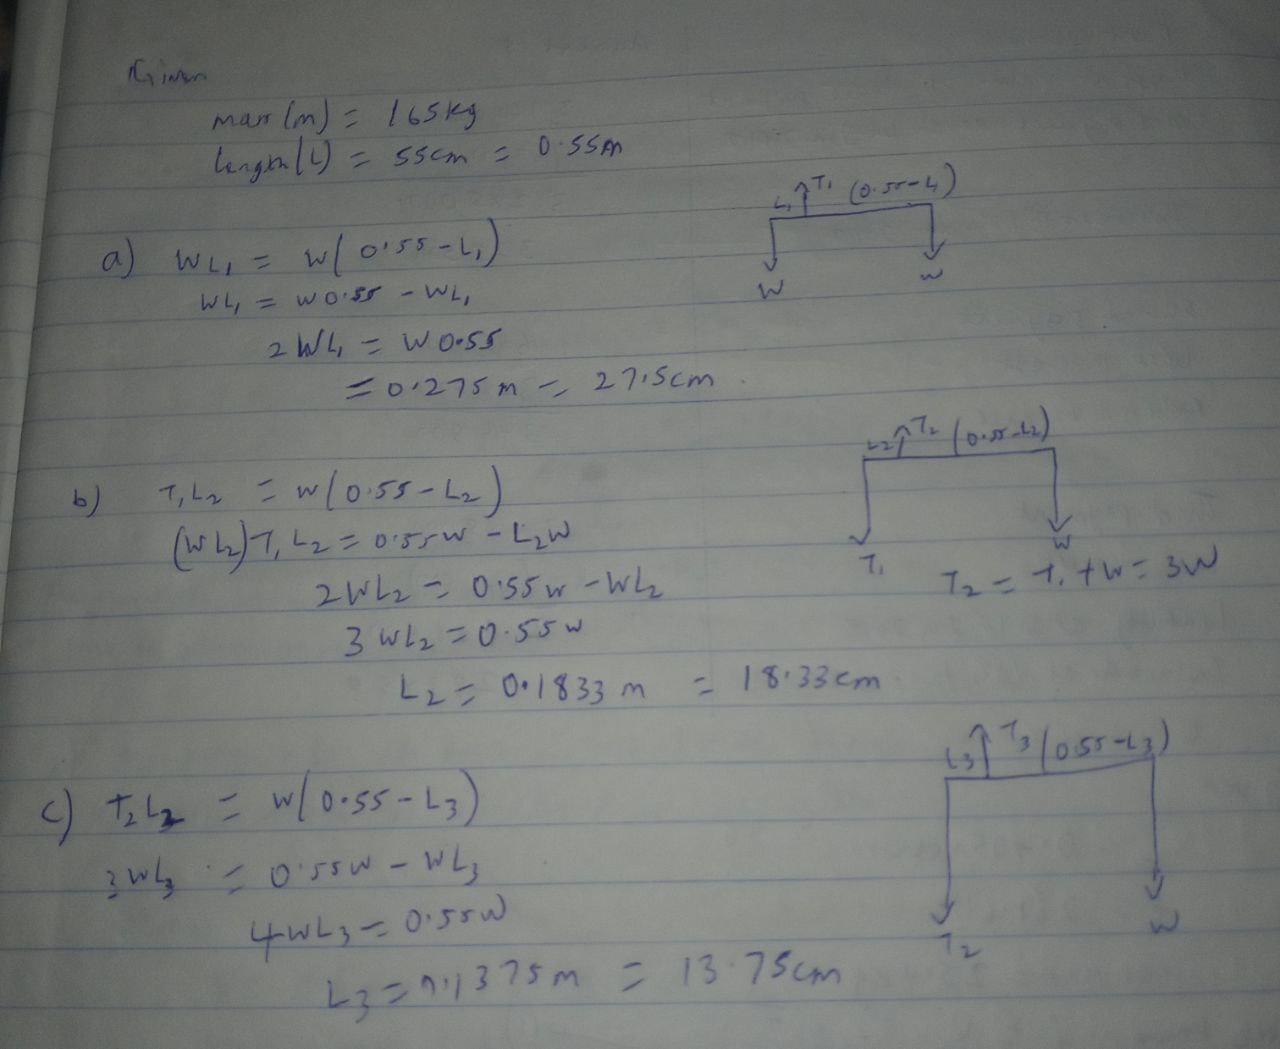 Given
mass (m) = 165kg
length (L) = 55cm = 0.55m
L₁ T₁ (0.55-L₁)
W W
a) WL₁ = W(0.55-L₁)
WL₁ = W0.55 - WL₁
2WL₁ = W0.55
= 0.275m = 27.5cm.
L₂ T₂ (0.55-L₂)
T₁ W
b) T₁L₂ = W(0.55-L₂)
(WL₂)T₁L₂ = 0.55W - L₂W
T₂ = T₁ + W = 3W
2WL₂ = 0.55W - WL₂
3WL₂ = 0.55W
L₂ = 0.1833m = 18.33cm
L₃ T₃ (0.55-L₃)
T₂ W
c) T₂L₂ = W(0.55-L₃)
3WL₃ = 0.55W - WL₃
4WL₃ = 0.55W
L₃ = 0.1375m = 13.75cm